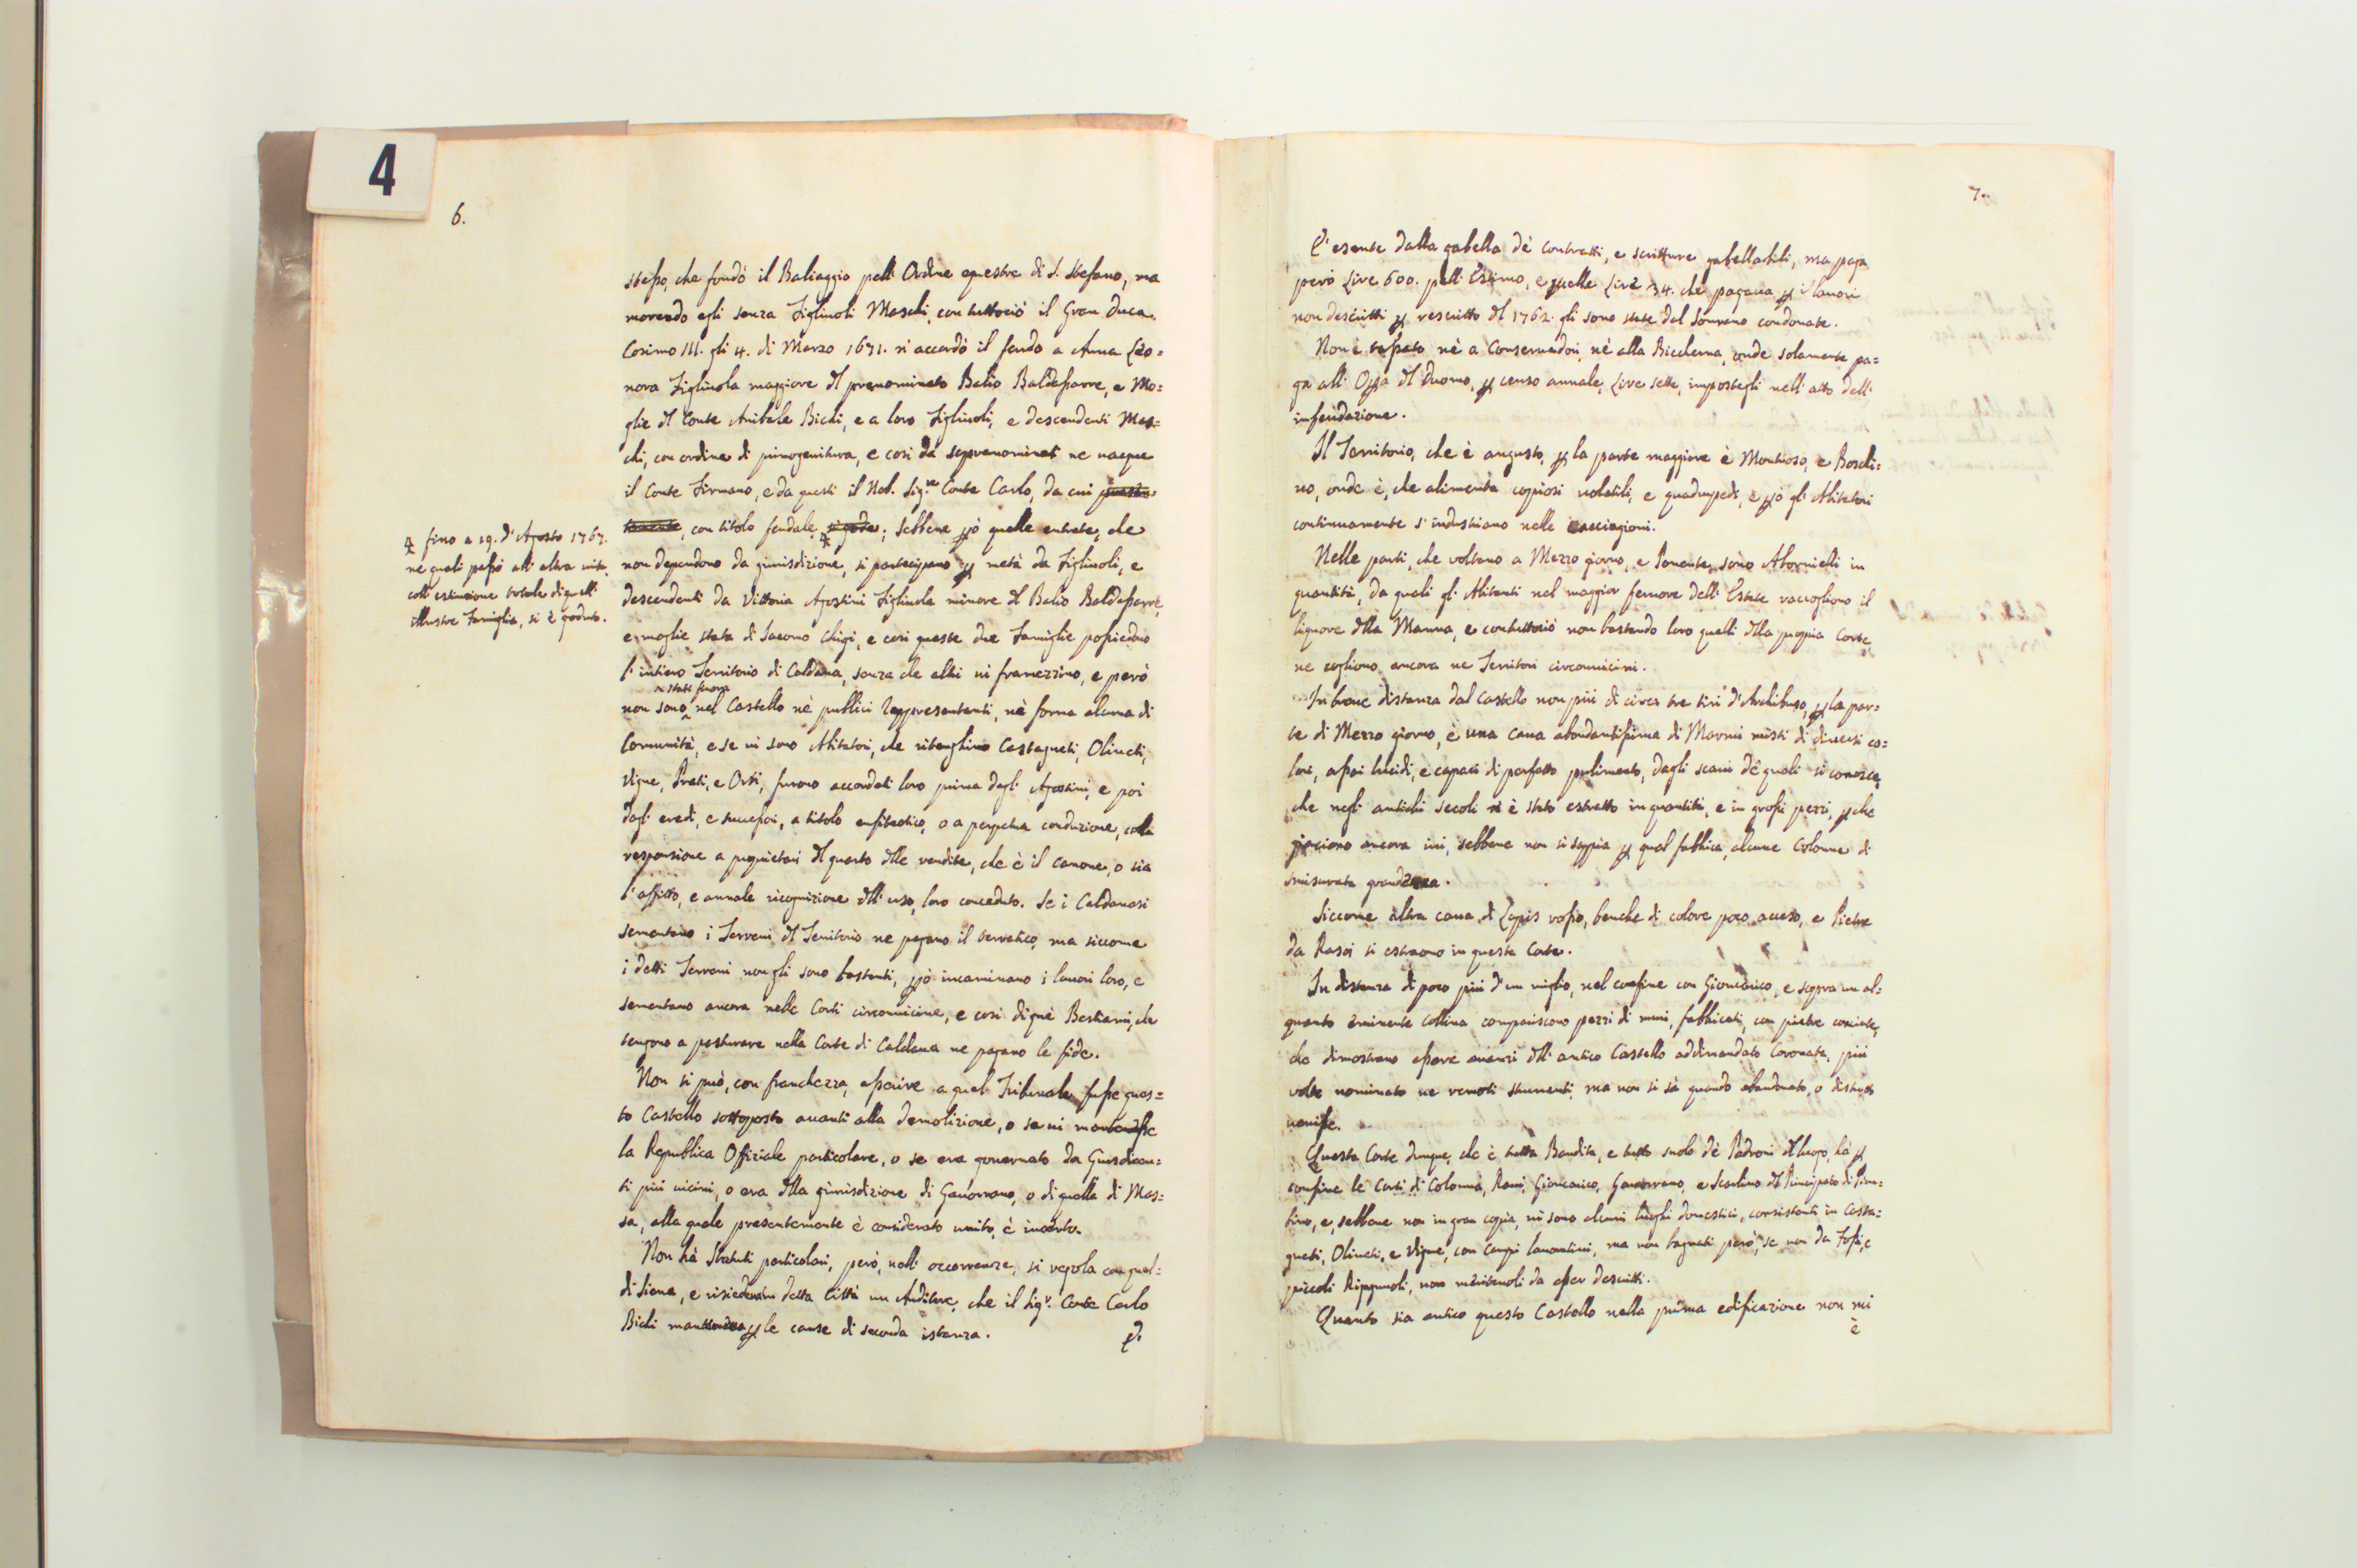 4
6.
stesso, che fondò il Baliaggio pell'Ordine equestre di S. Stefano, ma
morendo egli senza Figliuoli Maschi, con tuttociò il Gran Duca
Cosimo III. gli 4. di Marzo 1671. ri accordò il feudo a Anna Leo=
nora Figliuola maggiore del prenominato Balio Baldassarre, e Mo=
glie del Conte Anibale Bichi, e a loro Figliuoli, e descendenti Mas=
chi, con ordine di primogenitura, e così da sopranominati ne nacque
il Conte Firmano, e da questi il Nob. Sig.re Conte Carlo, da cui presen=
temente, con titolo feudale, si gode; sebbene però quelle entrate, che
non dependono da giurisdizione, si partecipano per metà da Figliuoli, e
descendenti da Vittoria Agostini Figliuola minore del Balio Baldassarre,
e moglie stata di Iacomo Chigi, e così queste due Famiglie possiedono
l'intiero Territorio di Caldana, senza che altri vi framezzino, e però
non sono nel Castello nè publici Rappresentanti, nè forma alcuna di
Comunità, e se vi sono Abitatori, che ritenghino Castagneti, Oliveti,
Vigne, Prati, e Orti, furono accordati loro prima dagli Agostini, e poi
dagl'eredi, e successori, a titolo enfiteotico, o a perpetua conduzione, colla
responsione a proprietari del quarto delle rendite, che è il canone, o sia
l'affitto, e annale ricognizione dell'uso, loro conceduto. Se i Caldanesi
sementano i Terreni del Territorio ne pagano il terratico, ma siccome
i detti Terreni non gli sono bastanti, però incaminano i lavori loro, e
sementano ancora nelle Corti circonvicine, e così di què Bestiami, che
tengono a pasturare nella Corte di Caldana ne pagano le fide.
Non si può, con franchezza, asserire a qual Tribunale fusse ques=
to Castello sottoposto avanti alla demolizione, o se vi mantenesse
la Republica Offiziale particolare, o se era governato da Giusdicen=
ti più vicini, o era della giurisdizione di Gavorrano, o di quella di Mas=
sa, alla quale presentemente è considerato unito, è incerto.
Non hà Statuti particolari, però, nell'occorrenze, si regola con quel=
di Siena, e risiedeva in detta Città un Auditore, che il Sig.r Conte Carlo
Bichi manteneva per le cause di seconda istanza.
E'
fino a 19. d'Agosto 1767.
nè quali passò all'altra vita,
coll'estinzione totale di quell'
illustre Famiglia, si è goduto.
state finora
7.
E' esente dalla gabella dè contratti, e scritture gabellabili, ma paga
però Lire 600. pell'Estimo, e quelle Lire 34. che pagava per i lavori
non descritti per rescritto del 1762. gli sono state dal Sovrano condonate.
Non è tassato nè a Conservadori, nè alla Biccherna, onde solamente pa=
ga all'Opera del Duomo, per censo annale, Lire sette, impostegli nell'atto dell'
infeudazione.
Il Territorio, che è angusto, per la parte maggiore è Montuoso, e Boschi=
vo, onde è, che alimenta copiosi volatili, e quadrupedi, e però gl'Abitatori
continuamente s'industriano nelle cacciagioni.
Nelle parti, che voltano a Mezzo giorno, e Ponente, sono Albornielli in
quantità, da quali gl'Abitanti nel maggior fervore dell'Estate raccogliono il
liquore della Manna, e contuttociò non bastando loro quelli della propria Corte,
ne cogliono ancora ne Territori circonvicini.
In breve distanza dal Castello non più di circa tre tiri d'Archibuso, per la par=
te di Mezzo giorno, è una cava abondantissima di Marmi misti di diversi co=
lori, assai lucidi, e capaci di perfetto pulimento, dagli scavi dè quali si conosce,
che negli antichi secoli ne è stato estratto in quantità, e in grossi pezzi, perche
giaciono ancora ivi, sebbene non si sappia per qual fabbrica, alcune Colonne di
smisurata grandezza.
Siccome altra cava di Lapis rosso, benche di colore poco acceso, e Pietre
da Rasoi si estraono in questa Corte.
In distanza di poco più d'un miglio, nel confine con Giuncarico, e sopra un al=
quanto eminente collina compariscono pezzi di muri, fabbricati, con pietre conciate,
che dimostrano essere avanzi dell'antico Castello addimandato Coronata, più
volte nominato ne remoti strumenti, ma non si sà quando abandonato, o distrutto
venisse.
Questa Corte dunque, che è tutta Bandita, e tutto suolo dè Padroni del luogo, hà per
confine le Corti di Colonna, Ravi, Giuncarico, Gavorrano, e Scarlino del Principato di Piom=
bino, e, sebbene non in gran copia, vi sono alcuni luoghi domestici, consistenti in Casta=
gneti, Oliveti, e Vigne, con campi lavorativi, ma non bagnati però, se non da Fossi, e
piccoli Rigagnoli, non meritevoli da esser descritti.
Quanto sia antico questo Castello nella prima edificazione non mi
è